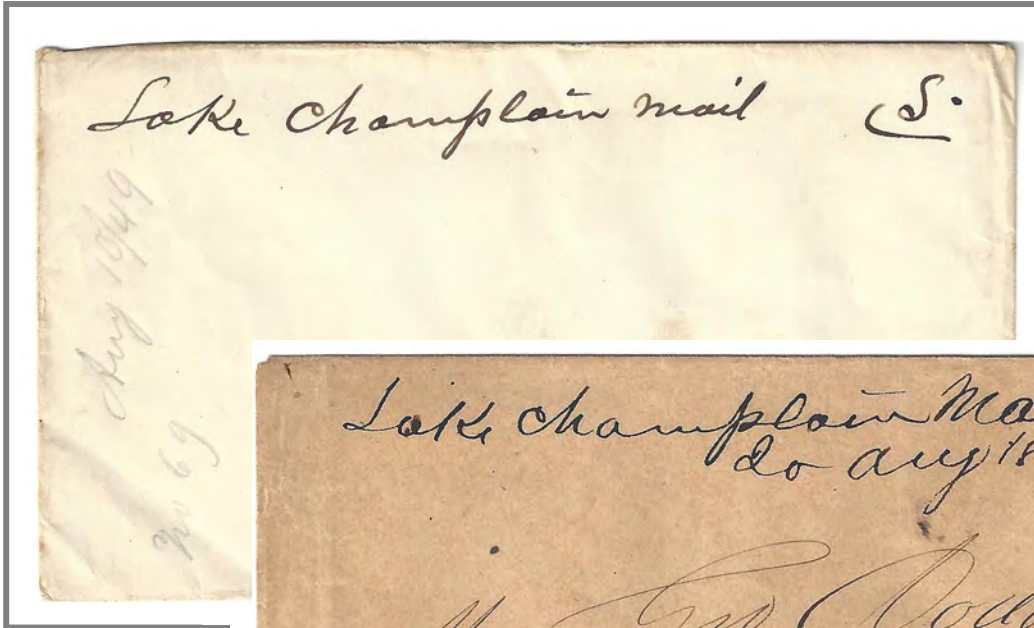 Lake Champlain Mail 5.
Aug 10/49
No 69
Lake Champlain Ma
20 Aug 18
Geo